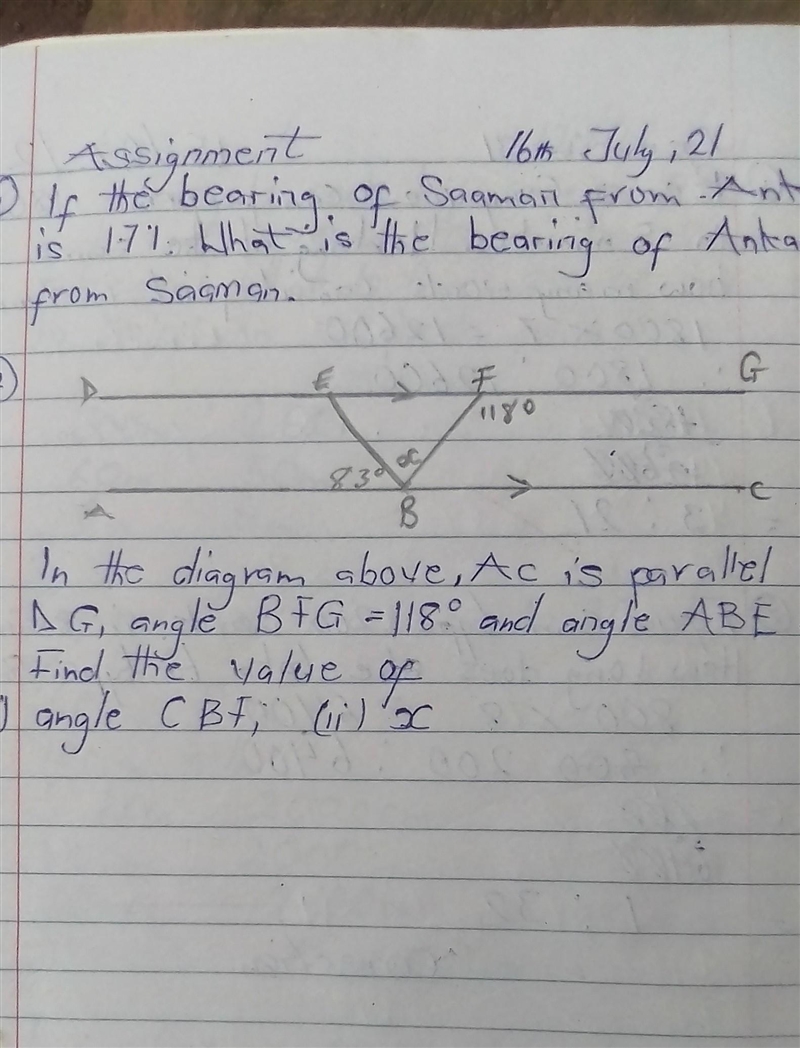 Assignment 16th July, 21
If the bearing of Saaman from Ant
is 171. What is the bearing of Anka
from Saaman.
D E F G
118°
83° x
A B C
In the diagram above, AC is parallel
DG, angle BFG = 118° and angle ABE
Find the value of
angle CBF, (ii) x